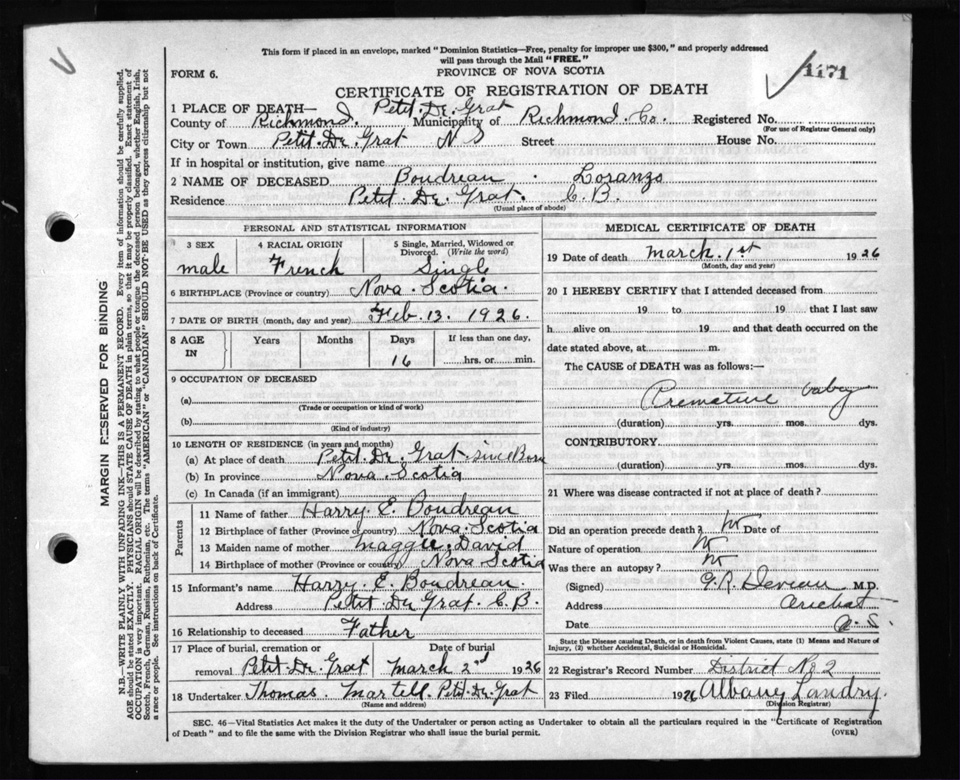 This form if placed in an envelope, marked "Dominion Statistics—Free, penalty for improper use $300," and properly addressed
will pass through the Mail "FREE."
FORM 6.
PROVINCE OF NOVA SCOTIA
1171
CERTIFICATE OF REGISTRATION OF DEATH
1 PLACE OF DEATH— Petit. De. Grat
County of Richmond. Municipality of Richmond. Co. Registered No.
(For use of Registrar General only)
City or Town Petit. De. Grat N S Street House No.
If in hospital or institution, give name
2 NAME OF DECEASED Boudreau . Loranzo
Residence Petit. De. Grat. C. B.
(Usual place of abode)
PERSONAL AND STATISTICAL INFORMATION
3 SEX 4 RACIAL ORIGIN 5 Single, Married, Widowed or Divorced. (Write the word)
male French Single
6 BIRTHPLACE (Province or country) Nova. Scotia.
7 DATE OF BIRTH (month, day and year) Feb. 13. 1926.
8 AGE IN Years Months Days If less than one day,
16 hrs. or min.
9 OCCUPATION OF DECEASED
(a)
(Trade or occupation or kind of work)
(b)
(Kind of industry)
10 LENGTH OF RESIDENCE (in years and months)
(a) At place of death Petit. De. Grat. sinc Born
(b) In province Nova. Scotia
(c) In Canada (if an immigrant)
Parents
11 Name of father Harry. E. Boudreau
12 Birthplace of father (Province or country) Nova. Scotia
13 Maiden name of mother Maggie. David
14 Birthplace of mother (Province or country) Nova Scotia
15 Informant's name Harry. E. Boudreau.
Address Petit. De Grat. C. B.
16 Relationship to deceased Father
17 Place of burial, cremation or removal Petit. De. Grat Date of burial March 2nd 1926
18 Undertaker Thomas. Martell. Petit. De. Grat
(Name and address)
MEDICAL CERTIFICATE OF DEATH
19 Date of death March. 1st 1926
(Month, day and year)
20 I HEREBY CERTIFY that I attended deceased from
19 to 19 that I last saw
h alive on 19 and that death occurred on the
date stated above, at m.
The CAUSE of DEATH was as follows:—
Premature baby
(duration) yrs. mos. dys.
CONTRIBUTORY.
(duration) yrs. mos. dys.
21 Where was disease contracted if not at place of death?
Did an operation precede death? no Date of
Nature of operation no
Was there an autopsy? no
(Signed) M.D.
Address Arichat
Date N. S.
State the Disease causing Death, or in death from Violent Causes, state (1) Means and Nature of
Injury, (2) whether Accidental, Suicidal or Homicidal.
22 Registrar's Record Number District No 2
23 Filed 1926 Albany Landry.
(Division Registrar)
SEC. 46—Vital Statistics Act makes it the duty of the Undertaker or person acting as Undertaker to obtain all the particulars required in the "Certificate of Registration
of Death" and to file the same with the Division Registrar who shall issue the burial permit.
(OVER)
MARGIN RESERVED FOR BINDING
N.B.—WRITE PLAINLY WITH UNFADING INK—THIS IS A PERMANENT RECORD. Every item of information should be carefully supplied.
AGE should be stated EXACTLY. PHYSICIANS should STATE CAUSE OF DEATH in plain terms, so that it may be properly classified. Exact statement of
OCCUPATION is very important. RACIAL ORIGIN will be described by stating to what people or tongue the deceased person belonged, whether English, Irish,
Scotch, French, German, Russian, Ruthenian, etc. The terms "AMERICAN" or "CANADIAN" SHOULD NOT BE USED as they express citizenship but not
a race or people. See instructions on back of Certificate.